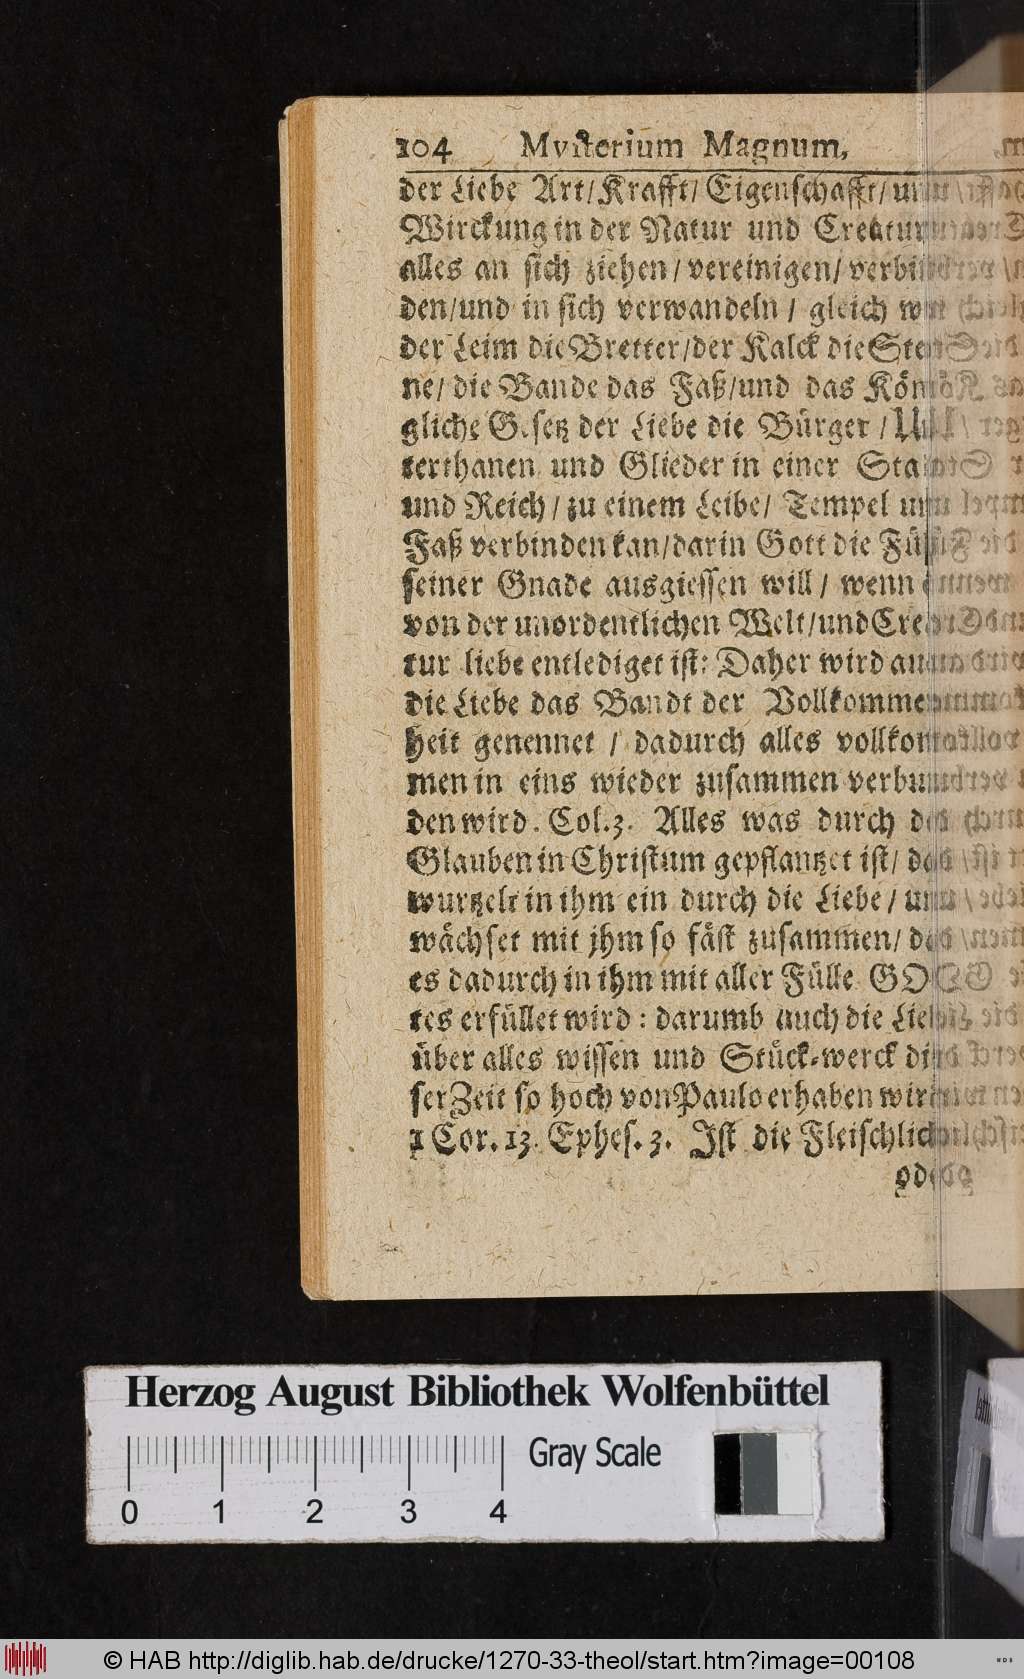 104 Mysterium Magnum,
der Liebe Art/ Krafft/ Eigenschafft/
Wirckung in der Natur und
alles an sich ziehen/ vereinigen/
den/ und in sich verwandeln / gleich
der Leim die Bretter/ der Kalck die
ne/ die Bande das Faß/ und das
gliche Gesetz der Liebe die Bürger /
terthanen und Glieder in einer
und Reich / zu einem Leibe/ Tempel
Faß verbinden kan/ darin Gott die
seiner Gnade ausgiessen will / wenn
von der unordentlichen Welt/ und Crea
tur liebe entlediget ist: Daher wird
die Liebe das Bandt der Vollkommen
heit genennet / dadurch alles vollkom
men in eins wieder zusammen verbun
den wird. Col. 3. Alles was durch
Glauben in Christum gepflantzet ist/
wurtzelt in ihm ein durch die Liebe /
wächset mit jhm so fäst zusammen/
es dadurch in ihm mit aller Fülle GOt
tes erfüllet wird : darumb auch die
über alles wissen und Stück-werck
ser Zeit so hoch von Paulo erhaben
1 Cor. 13. Ephes. 3. Ist die
Herzog August Bibliothek Wolfenbüttel
Gray Scale
0 1 2 3 4
© HAB http://diglib.hab.de/drucke/1270-33-theol/start.htm?image=00108